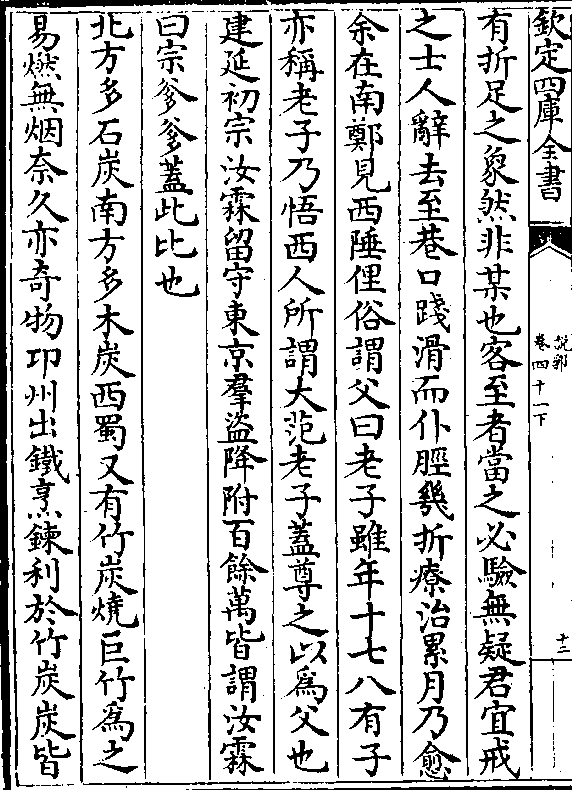 欽定四庫全書
說郛
卷四十一下
十二
有折足之象然非某也客至者當之必驗無疑君宜戒
之士人辭去至巷口踐滑而仆脛幾折療治累月乃愈
余在南鄭見西陲俚俗謂父曰老子雖年十七八有子
亦稱老子乃悟西人所謂大范老子蓋尊之以為父也
建延初宗汝霖留守東京羣盜降附百餘萬皆謂汝霖
曰宗爹爹蓋此比也
北方多石炭南方多木炭西蜀又有竹炭燒巨竹為之
易燃無烟奈久亦奇物卭州出鐵烹鍊利於竹炭炭皆